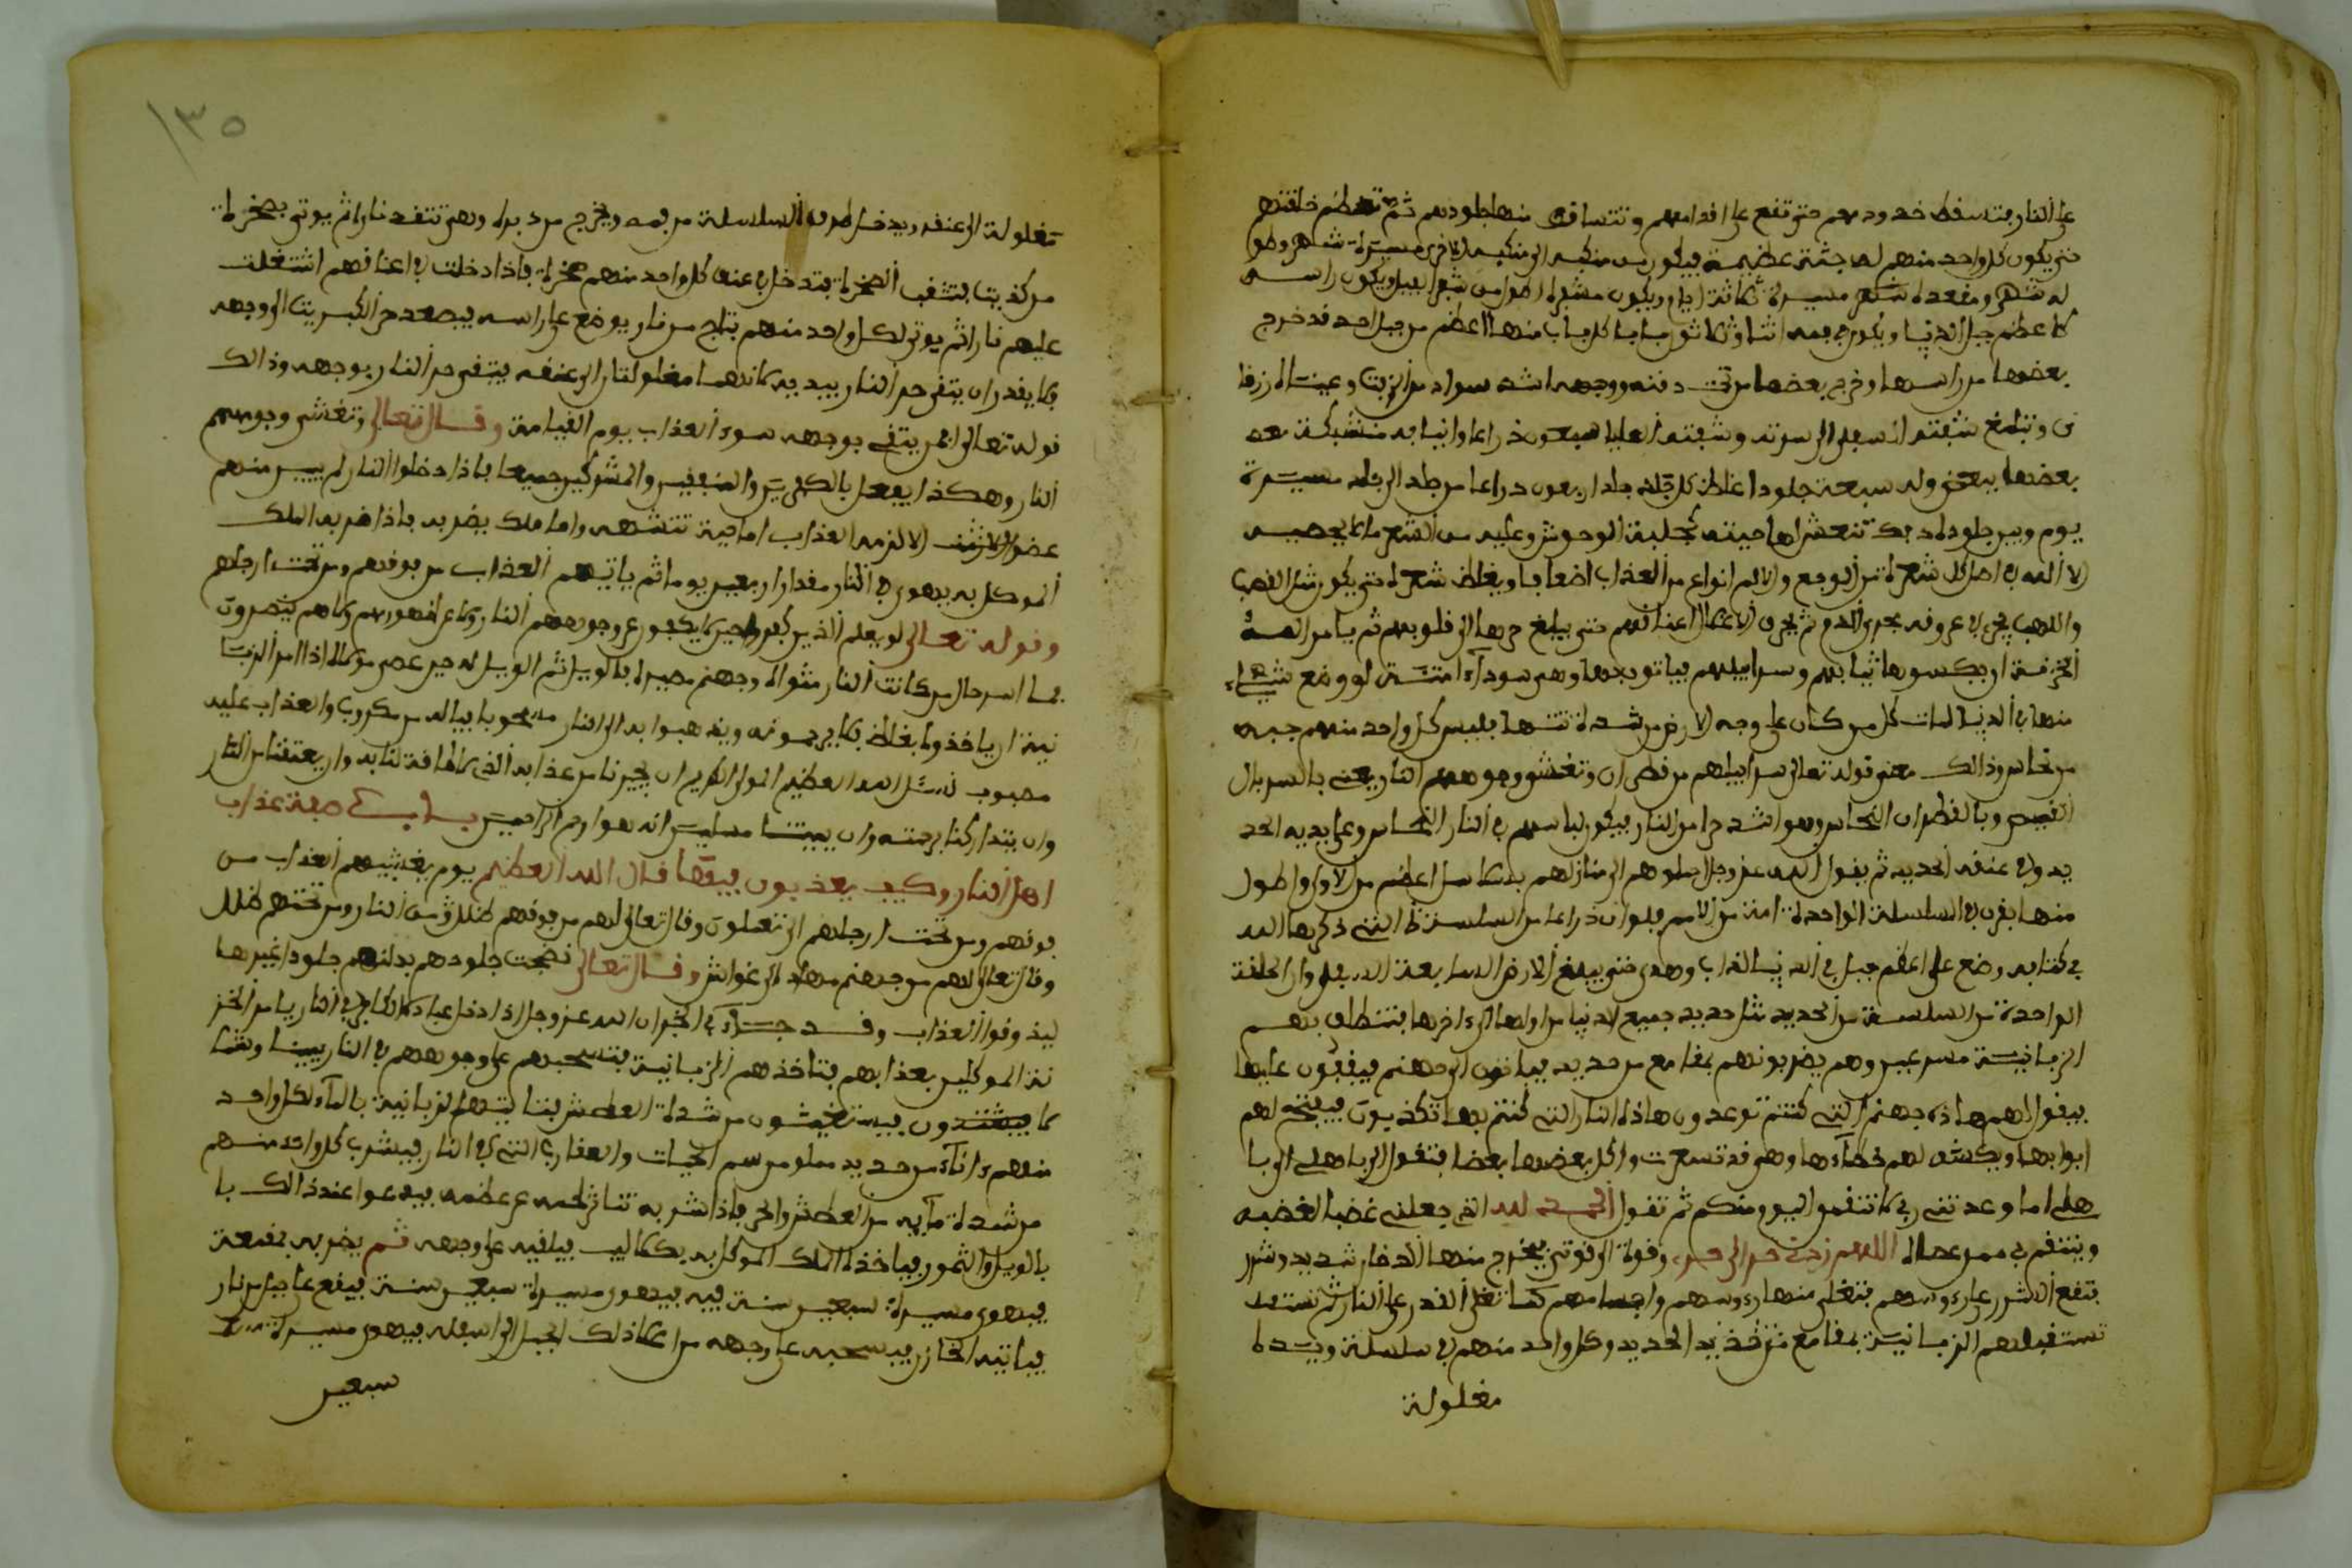 على النار فتسقط خدودهم حتى تقع على اقدامهم وتتساقط منها جلودهم ثم تعظم خلقتهم
حتى يكون كل واحد منهم له جثة عظيمة فيكون بين منكبه الى منكبه الاخرى مسيرة شهر وطو
له شهر ومقعده مسيرة ثلاثة ايام ويكون مشفره اطول من شفر البعير ويكون راسه
كاعظم جبل الدنيا ويكون في فمه اثنا وثلاثون نابا كل ناب منها اعظم من جبل احد قد خرج
بعضها من راسها وخرج بعضها من تحت دقنه ووجهه اشد سوادا من الزفت وعيناه زرقا
ن وتبلغ شفته السفلى الى سرته وشفته العليا سبعون ذراعا وانيابه متشبكة بعـ
بعضها ببعض وله سبعة جلودا غلظ كل جلد اربعون ذراعا من جلد الى جلد مسيرة
يوم وبين جلوده حيات كجلبة الوحوش وعليه من الشعر ما لا يحصيه
الا الله في اصل كل شعرة من الوجع والالم انواع من العذاب اضعافا ويغلظ شعره حتى يكون
واللهب يجري في عروقه مجرى الدم ثم يجري الاغلال اعناقهم حتى يبلغ حرها الى قلوبهم ثم يامر الله
الخزنة ان يكسوها ثيابهم وسرابيلهم فياتون بها وهي سوداء منتنة لو وضع شيء
منها في الدنيا لمات كل من كان على وجه الارض من شدة نتنها فيلبس كل واحد منهم جبة
من نحاس وذالك معنى قوله تعالى سرابيلهم من قطران وتغشى وجوههم النار يعني بالسربال
القميص وبالقطران النحاس وهو اشد حرا من النار فيكون لباسهم في النار النحاس وعلى يديه الحد
يد وفي عنقه الحديد ثم يقول الله عز وجل احملوهم الى منازلهم بسلاسل اعظم من الاولى واطول
منها يقرن في السلسلة الواحدة امة من الامم فلو ان ذراعا من السلسلة التي ذكرها الله
في كتابه وضع على اعظم جبل في الدنيا لذاب وهوى حتى يبلغ الارض السابعة السفلى وان الحلقة
الواحدة من السلسلة من الحديد مثل حديد جميع الدنيا من اولها الى اخرها فتنطلق بهم
الزبانية مسرعين وهم يضربونهم بمقامع من حديد فياتون الى جهنم فيقفون عليها
فيقول لهم هاذه جهنم التي كنتم توعدون هاذه النار التي كنتم بها تكذبون فيفتح لهم
ابوابها ويكشف لهم غطاءها وهي قد تسعرت واكل بعضها بعضا فتقول الي باهلي الي با
هلي اما وعدتني ربي لانتقمن اليوم منكم ثم تقول الحمد لله الذي جعلني غضبا لغضبه
وينتقم بي ممن عصاه اللهم زدني حرا الى حري وقوة الى قوتي فيخرج منها دخان شديد وشرر
فتقع الشرر على رءوسهم فتغلي منها رءوسهم واجسامهم كما تغلي القدر على النار ثم
تستقبلهم الزبانية بمقامع من الحديد وكل واحد منهم في سلسلة ويـده
مغلولة
١٣٥
مغلولة الى عنقه ويدخل طرف السلسلة من فمه ويخرج من دبره وهي تتقد نارا ثم يوتى بصخرة
من كبريت فتثقب الصخرة فتدخل في عنق كل واحد منهم صخرة فاذا دخلت في اعناقهم اشتعلت
عليهم نارا ثم يوتى لكل واحد منهم بتاج من نار يوضع على راسه فيصعد حر الكبريت الى وجهه
فلا يقدر ان يتقي حر النار بيديه لانهما مغلولتان الى عنقه فيتقي حر النار بوجهه وذالك
قوله تعالى افمن يتقي بوجهه سوء العذاب يوم القيامة وقال تعالى وتغشى وجوههم
النار وهكذا يفعل بالكفرين والمنافقين والمشركين جميعا فاذا دخلوا النار لم يبق منهم
عضو الا لزمه العذاب اما حية تنهشه واما ملك يضربه فاذا ضربه الملك
الموكل به يهوي في النار مقدار اربعين يوما ثم ياتيهم العذاب من فوقهم ومن تحت ارجلهم
وقوله تعالى لو يعلم الذين كفروا حين لا يكفون عن وجوههم النار ولا عن ظهورهم ولا هم ينصرون
فما اسر حال من كانت النار مثواه وجهنم مصيره فالويل ثم الويل له حين عصى مولاه اذا امر الزبا
نية ان ياخذوه بغلظ فلا يرحمونه ويذهبوا به الى النار مسحوبا فياله من مكروب والعذاب عليه
مصبوب نسئل الله العظيم المولى الكريم ان يجيرنا من عذابه الذي لا طاقة لنا به وان يعتقنا من النار
وان يتداركنا برحمته وان يميتنا مسلمين انه هو ارحم الراحمين باب في صفة عذاب
اهل النار وكيف يعذبون فيها قال الله العظيم يوم يغشيهم العذاب من
فوقهم ومن تحت ارجلهم الى تعملون وقال تعالى لهم من فوقهم ظلل من النار ومن تحتهم ظلل
وقال تعالى لهم من جهنم مهاد الى غواش وقال تعالى نضجت جلودهم بدلنهم جلودا غيرها
ليذوقوا العذاب وقد جاء في الخبر ان الله عز وجل اذا ادخل عباده الكافر في النار يامر الخز
نة الموكلين بعذابهم فتاخذهم الزبانية فتسحبهم على وجوههم في النار يمينا وشما
لا فيستغيثون من شدة العطش فتاتيهم الزبانية بالماء لكل واحد
منهم اناء من حديد مملو من سم الحيات والعقارب التي في النار فيشرب كل واحد منهم
من شدة ما به من العطش والحر فاذا شربه تناثر لحمه عن عظمه فيدعوا عند ذالك با
بالويل والثبور فياخذه الملك الموكل به بكلاليب فيلقيه على وجهه ثم يضربه بمقمعة
فيهوي مسيرة سبعين سنة فيه فيهوي مسيرة سبعين سنة فيقع على جبل من نار
فياتيه الخازن فيسحبه على وجهه من اعلا ذلك الجبل الى اسفله فيهوي مسيرة
سبعين